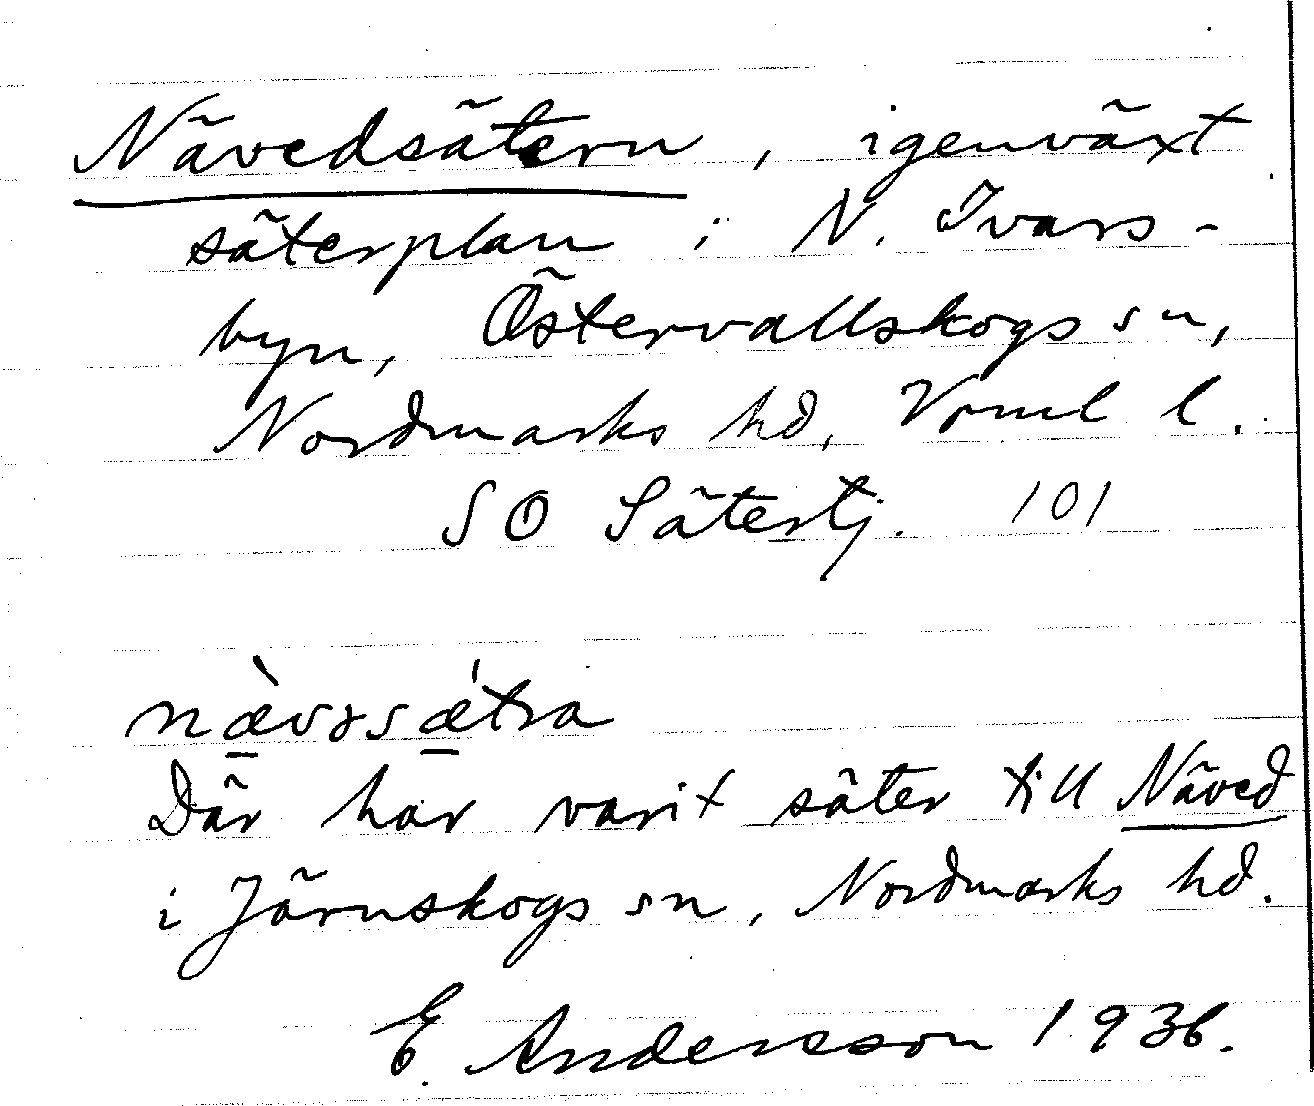 Nävedsätern, igenväxt
säterplan i N. Ivars-
byn, Östervallskogs sn,
Nordmarks hd, Vrml l.
SO Sätertj. 101
næ̀vəsǽtra
Där har varit säter till Näved
i Järnskogs sn, Nordmarks hd.
E. Andersson 1936.